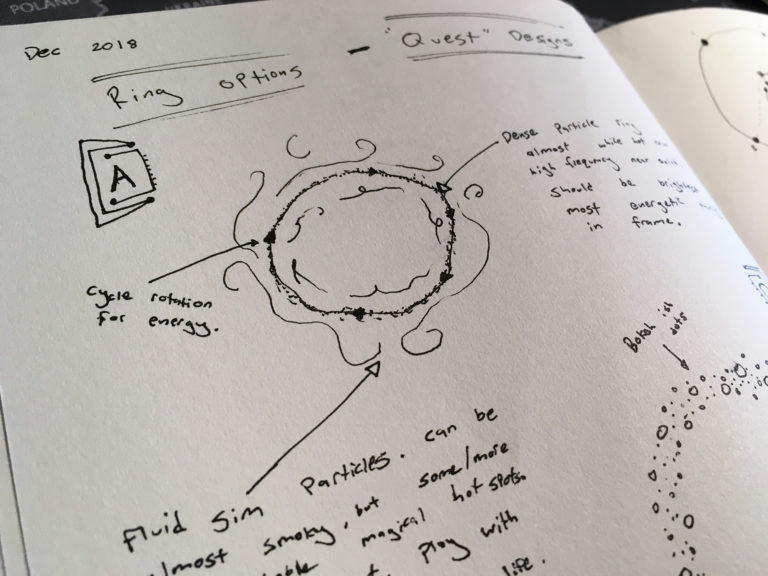 POLAND
UKRAINE
Dec 2018
Ring options - "Quest" Designs
A
Dense Particle ring
almost white hot
high frequency near
Should be brightest
most energetic
in frame.
Cycle rotation
for energy.
Bokeh ish
dots
Fluid sim Particles. can be
almost smoky, but some/more
magical hot spots.
Play with
life.